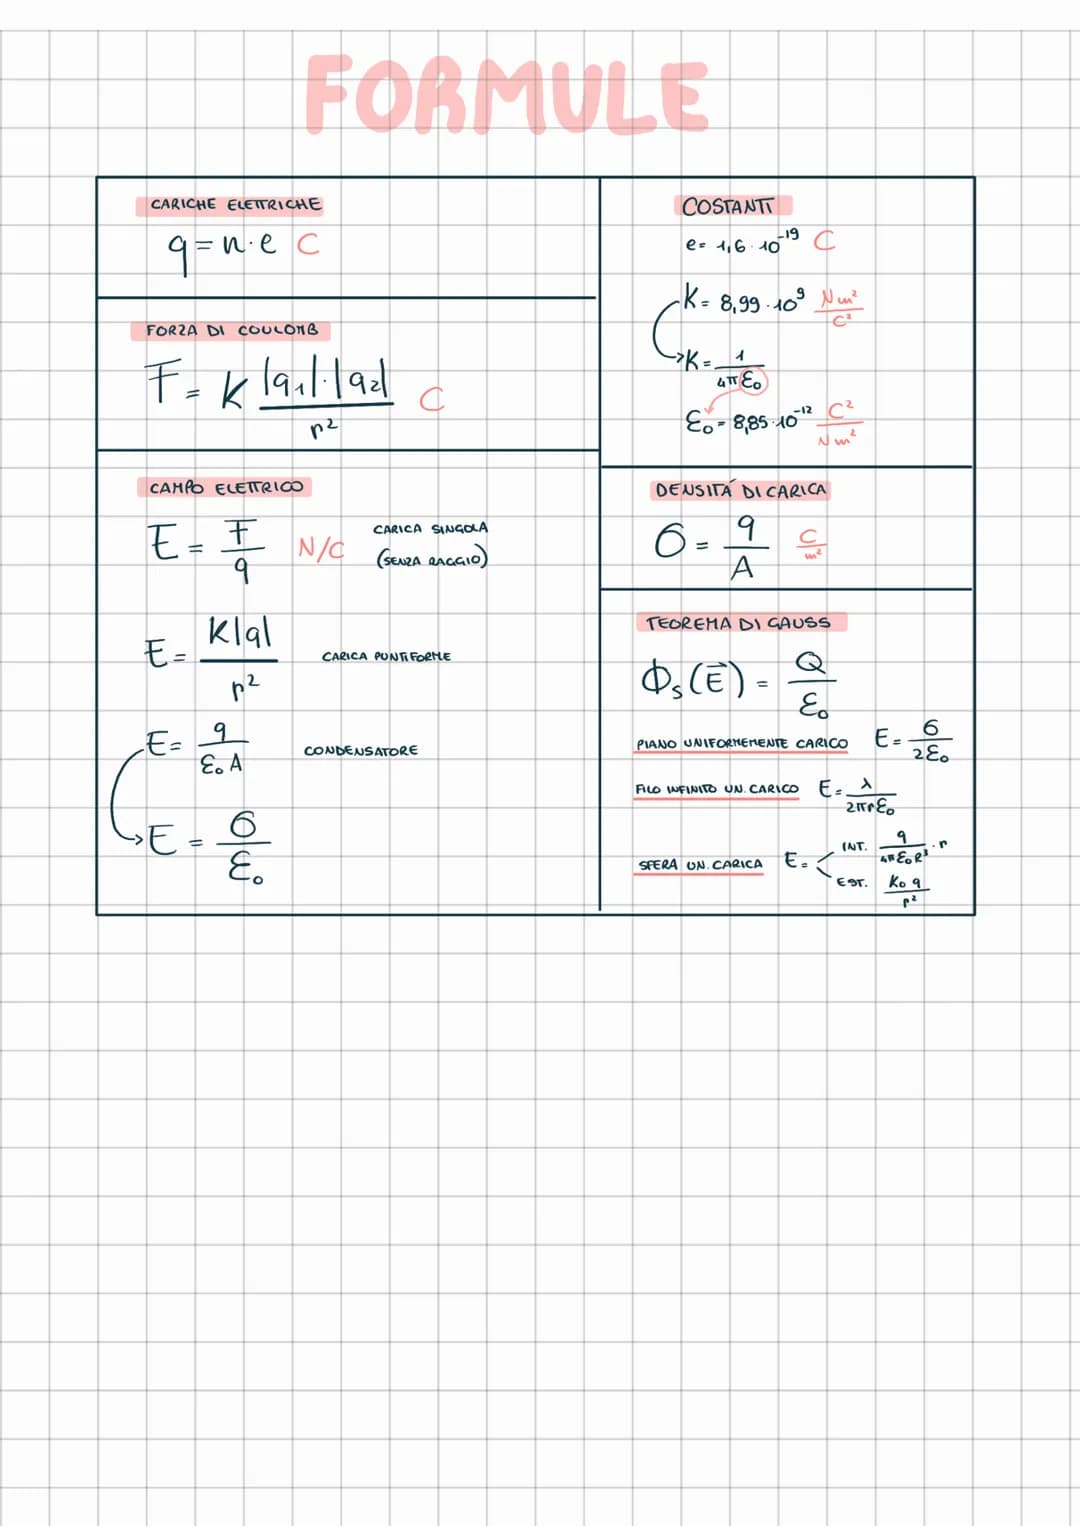 FORMULE
CARICHE ELETTRICHE
q = n·e C
FORZA DI COULOMB
F = K |q1|·|q2| / r² C
CAMPO ELETTRICO
E = F / q N/C CARICA SINGOLA
(SENZA RAGGIO)
E = K|q| / r² CARICA PUNTIFORME
E = q / ε0 A CONDENSATORE
E = σ / ε0
COSTANTI
e = 1,6 · 10⁻¹⁹ C
K = 8,99 · 10⁹ Nm² / C²
K = 1 / 4π ε0
ε0 = 8,85 · 10⁻¹² C² / Nm²
DENSITÁ DI CARICA
σ = q / A C / m²
TEOREMA DI GAUSS
Φs(E⃗) = Q / ε0
PIANO UNIFORMEMENTE CARICO E = σ / 2ε0
FILO INFINITO UN. CARICO E = λ / 2πrε0
SFERA UN. CARICA E = INT. q / 4πε0R³ · r
EST. K0 q / r²